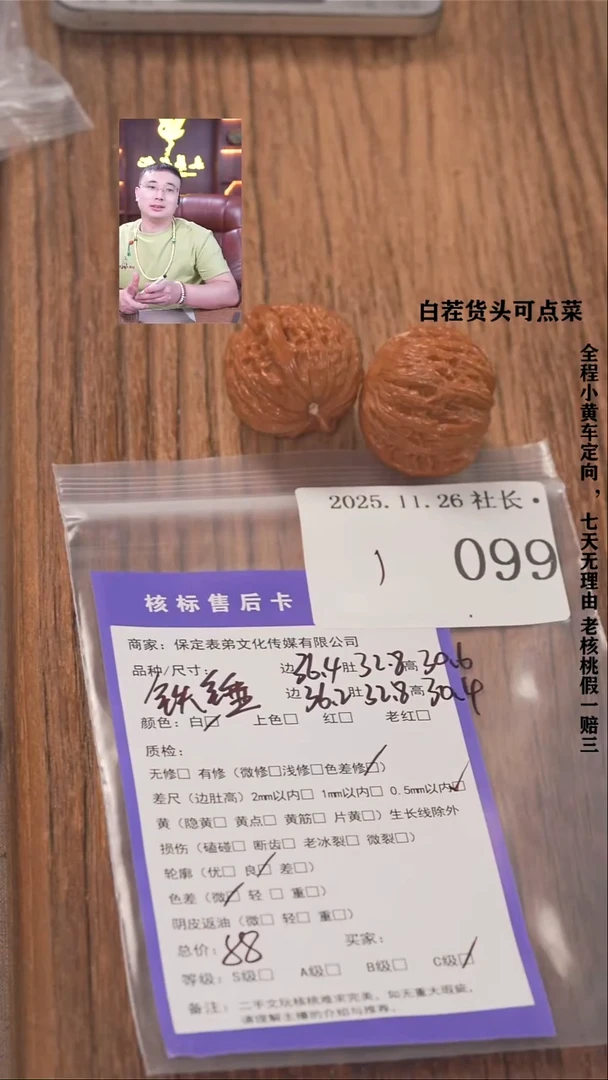 白茬货头可点菜
全程小黄车定向，七天无理由 老核桃假一赔三
2025.11.26 社长·
099
核标售后卡
商家：保定表弟文化传媒有限公司
品种/尺寸：铁锤 边36.4肚32.8高30.6
边36.2肚32.8高30.4
颜色：白☑ 上色□ 红□ 老红□
质检：
无修□ 有修（微修□浅修□色差修☑）
差尺（边肚高）2mm以内□ 1mm以内□ 0.5mm以内☑
黄（隐黄□ 黄点□ 黄筋□ 片黄□）生长线除外
损伤（磕碰□ 断齿□ 老冰裂□ 微裂□）
轮廓（优□ 良☑ 差□）
色差（微☑ 轻□ 重□）
阴皮返油（微□ 轻□ 重□）
总价：88 买家：
等级：S级□ A级□ B级□ C级☑
备注：二手文玩核桃难求完美，如无重大瑕疵，
请理解主播的介绍与推荐。